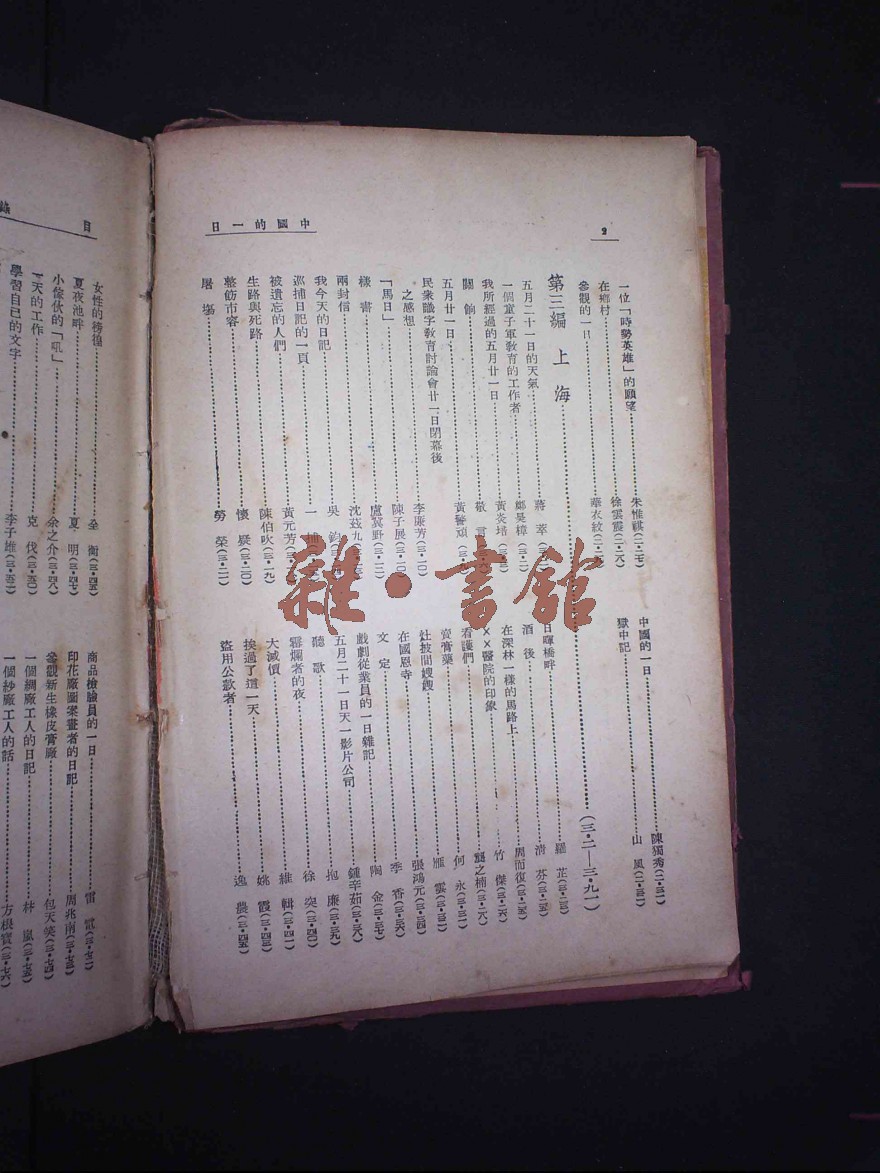 中國的一日
2
一位「時勢英雄」的願望……朱惟祺(二·二七)
在鄉村……徐雲霞(二·二八)
參觀的一日……華衣紋(二·二
中國的一日……陳獨秀(二·三一)
獄中記……山風(二·三二)
第三編 上海……(三·二—三·九一)
五月二十一日的天氣……蔣萃
一個童子軍教育的工作者……鄭昊樟
我所經過的五月廿一日……黃炎培
關餉……敬言
五月廿一日……黃警頑
民衆識字教育討論會廿一日閉幕後
之感想……李廉芳(三·一〇)
「馬日」……陳子展(三·一〇)
樣書……盧冀野(三·一一)
兩封信……沈茲九
我今天的日記……吳
巡捕日記的一頁……一
被遺忘的人們……黃元芳
生路與死路……陳伯吹(三·一九)
整飭市容……懷疑(三·二〇)
屠場……勞榮(三·二一)
日暉橋畔……羅芷(三·二三)
酒後……清芬(三·二五)
在深林一樣的馬路上……周而復(三·二五)
××醫院的印象……竹傑(三·二六)
看護們……龔之楠(三·二八)
賣膏藥……何永(三·三一)
灶披間嫂嫂……雁雲(三·三二)
在國恩寺……張鴻元(三·三四)
文定……季香(三·三六)
戲劇從業員的一日雜記……陶金(三·三七)
五月二十一日天一影片公司……鍾辛茹(三·三八)
聽歌……抱廉(三·三九)
霉爛者的夜……徐突(三·四〇)
大減價……維輯(三·四一)
挨過了這一天……姚霞(三·四三)
盜用公款者……逸農(三·四五)
雜·書館
目
錄
女性的徬徨……衡(三·四五)
夏夜池畔……夏明(三·四七)
小傢伙的「吼」……余之介(三·四八)
一天的工作……克伐(三·五〇)
學習自己的文字……李子雄(三·五一)
商品檢驗員的一日……雷電(三·七二)
印花廠圖案畫者的日記……周兆南(三·七三)
參觀新生橡皮膏廠……包天笑(三·七四)
一個綢廠工人的日記……林嵐(三·七五)
一個紗廠工人的話……方根寶(三·七六)